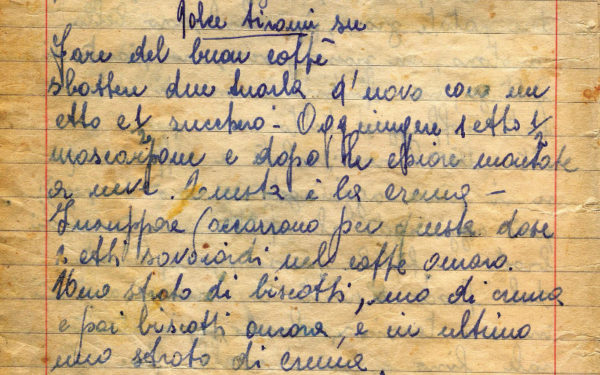 Dolce tirami su
Fare del buon caffè
sbattere due tuorla d'uovo con un
etto e 1/2 zucchero - Aggiungere 1 etto 1/2
mascarpone e dopo le chiare montate
a neve. Questa è la crema -
Inzuppare (occorrono per questa dose
3 etti savoiardi nel caffè amaro.
Uno strato di biscotti, uno di crema
e poi biscotti ancora, e in ultimo
uno strato di crema.